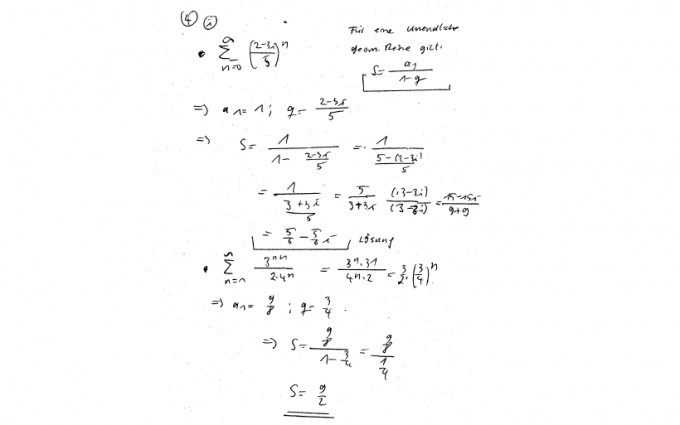 ④ ⓘ
Für eine unendliche
geom. Reihe gilt:
S = a₁ / (1 - q)
• ∑_{n=0}^{∞} ((2-3i)/5)^n
=> a₁ = 1; q = (2-3i)/5
=> S = 1 / (1 - (2-3i)/5) = 1 / ((5-(2-3i))/5)
= 1 / ((3+3i)/5) = 5/(3+3i) · (3-3i)/(3-3i) = (15-15i)/(9+9)
= 5/6 - 5/6 i Lösung
• ∑_{n=1}^{∞} 3^{n+1}/(2·4^n) = (3^n·3^1)/(4^n·2) = 3/2·(3/4)^n
=> a₁ = 9/8; q = 3/4
=> S = (9/8) / (1 - 3/4) = (9/8) / (1/4)
S = 9/2